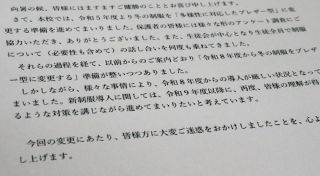 向暑の候、皆様にはますますご健勝のこととお喜び申し上げます。
さて、本校では、令和5年度より冬の制服を「多様性に対応したブレザー型」に変
更する準備を進めてまいりました。保護者の皆様には様な型のアンケート調査にご
協力いただき、ありがとうございました。また、生徒会が中心となり生徒全員で制服
について（必要性も含めて）の話し合いを何度も重ねてきました。
それらの過程を経て、以前からのご案内どおり「令和8年度から冬の制服をブレザ
ー型に変更する」準備が整いつつありました。
しかしながら、様々な事情により、令和8年度からの導入が厳しい状況となって
まいました。新制服導入に関しては、令和9年度以降に、再度、皆様の理解が得
るような対策を講じながら進めてまいりたいと考えています。
今回の変更にあたり、皆様方に大変ご迷惑をおかけしましたことを、心よ
し上げます。